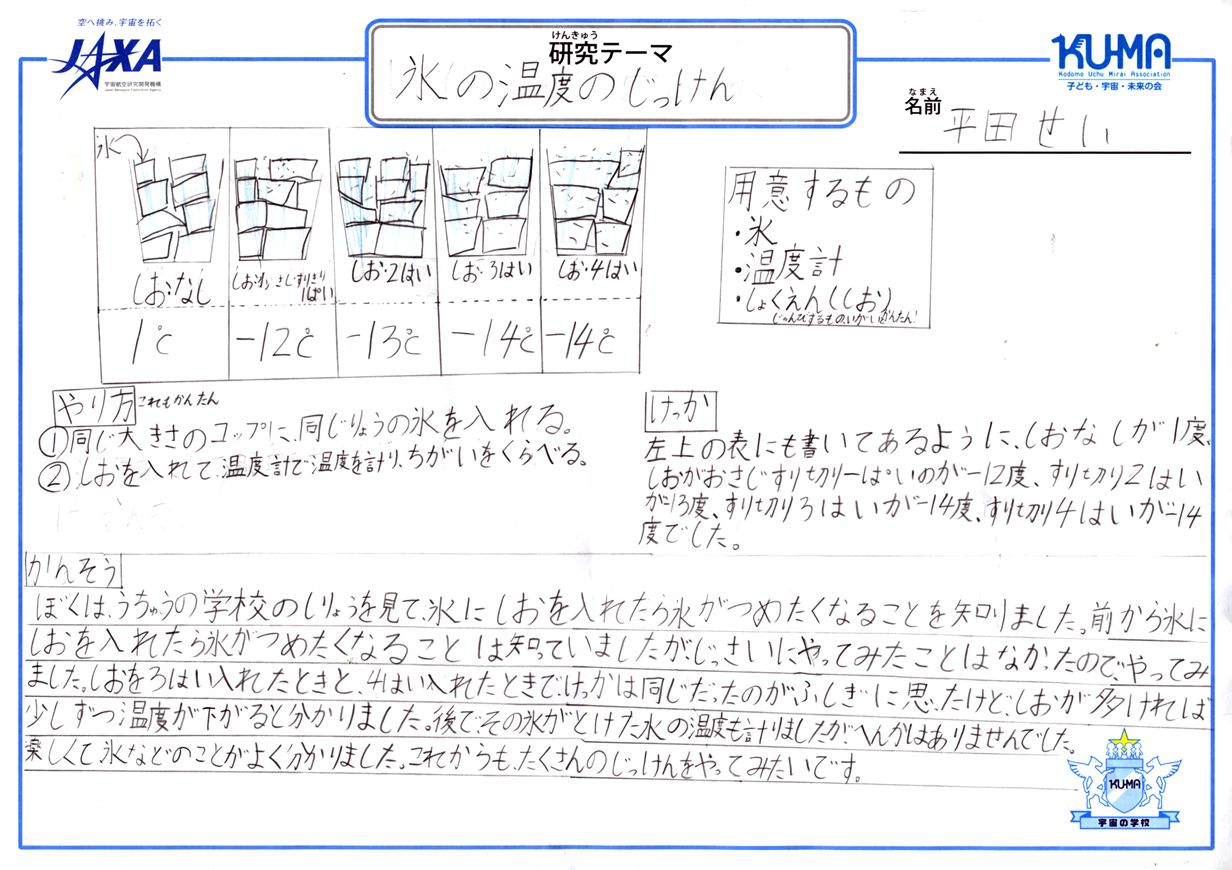 空へ挑み、宇宙を拓く
JAXA
宇宙航空研究開発機構
Japan Aerospace Exploration Agency
けんきゅう
研究テーマ
氷の温度のじっけん
KU-MA
Kodomo Uchu Mirai Association
子ども・宇宙・未来の会
なまえ
名前
平田せい
氷
しお・なし
しお・わ さじすりきり
1ぱい
しお・2はい
しお・3はい
しお・4はい
1℃
-12℃
-13℃
-14℃
-14℃
用意するもの
・氷
・温度計
・しょくえん(しお)
じゅんびするもの、いがいとかんたん!
やり方 これもかんたん
①同じ大きさのコップに、同じりょうの氷を入れる。
②しおを入れて、温度計で温度を計り、ちがいをくらべる。
けっか
左上の表にも書いてあるように、しおなしが1度、
しおがおさじすり切り一ぱいのが-12度、すり切り2はい
が-13度、すり切り3はいが-14度、すり切り4はいが-14
度でした。
かんそう
ぼくは、うちゅうの学校のしりょうを見て、氷にしおを入れたら氷がつめたくなることを知りました。前から氷に
しおを入れたら氷がつめたくなることは知っていましたがじっさいにやってみたことはなかったので、やってみ
ました。しおを3はい入れたときと、4はい入れたときで、けっかは同じだったのがふしぎに思ったけど、しおが多ければ
少しずつ温度が下がると分かりました。後で、その氷がとけた水の温度も計りましたが、へんかはありませんでした。
楽しくて氷などのことがよく分かりました。これからも、たくさんのじっけんをやってみたいです。
KU-MA
宇宙の学校